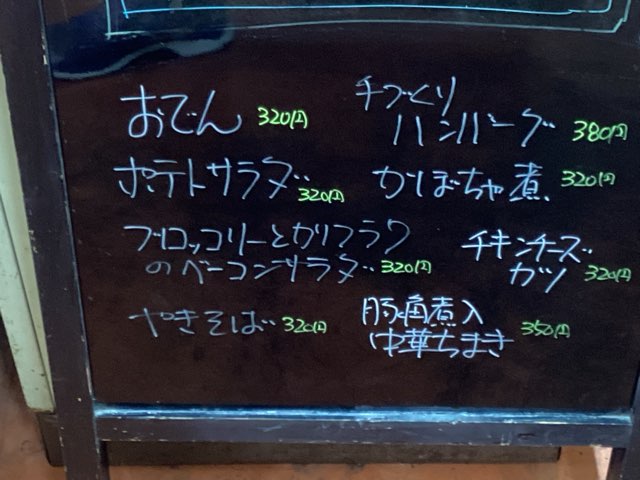 おでん 320円
ポテトサラダ 320円
ブロッコリーとカリフラワ
のベーコンサラダ 320円
やきそば 320円
手づくり
ハンバーグ 380円
かぼちゃ煮 320円
チキンチーズ
カツ 320円
豚角煮入
中華ちまき 350円